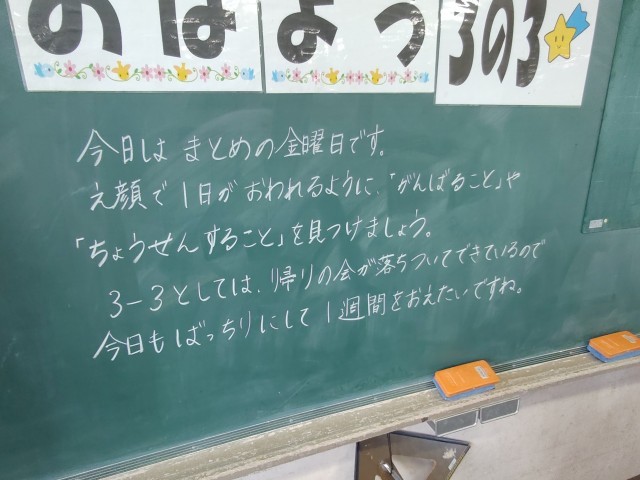 おはよう 3の3
今日は まとめの金曜日です。
え顔で1日がおわれるように、「がんばること」や
「ちょうせんすること」を見つけましょう。
3-3としては、帰りの会が落ちついてできているので
今日もばっちりにして1週間をおえたいですね。